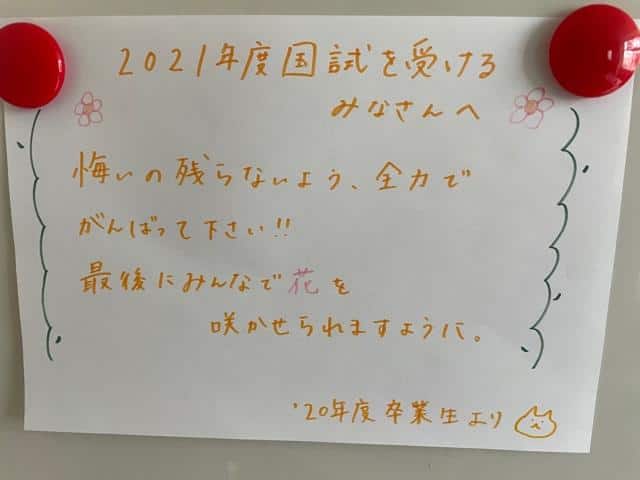 2021年度国試を受ける
みなさんへ
悔いの残らないよう、全力で
がんばって下さい!!
最後にみんなで花を
咲かせられますように。
'20年度卒業生より